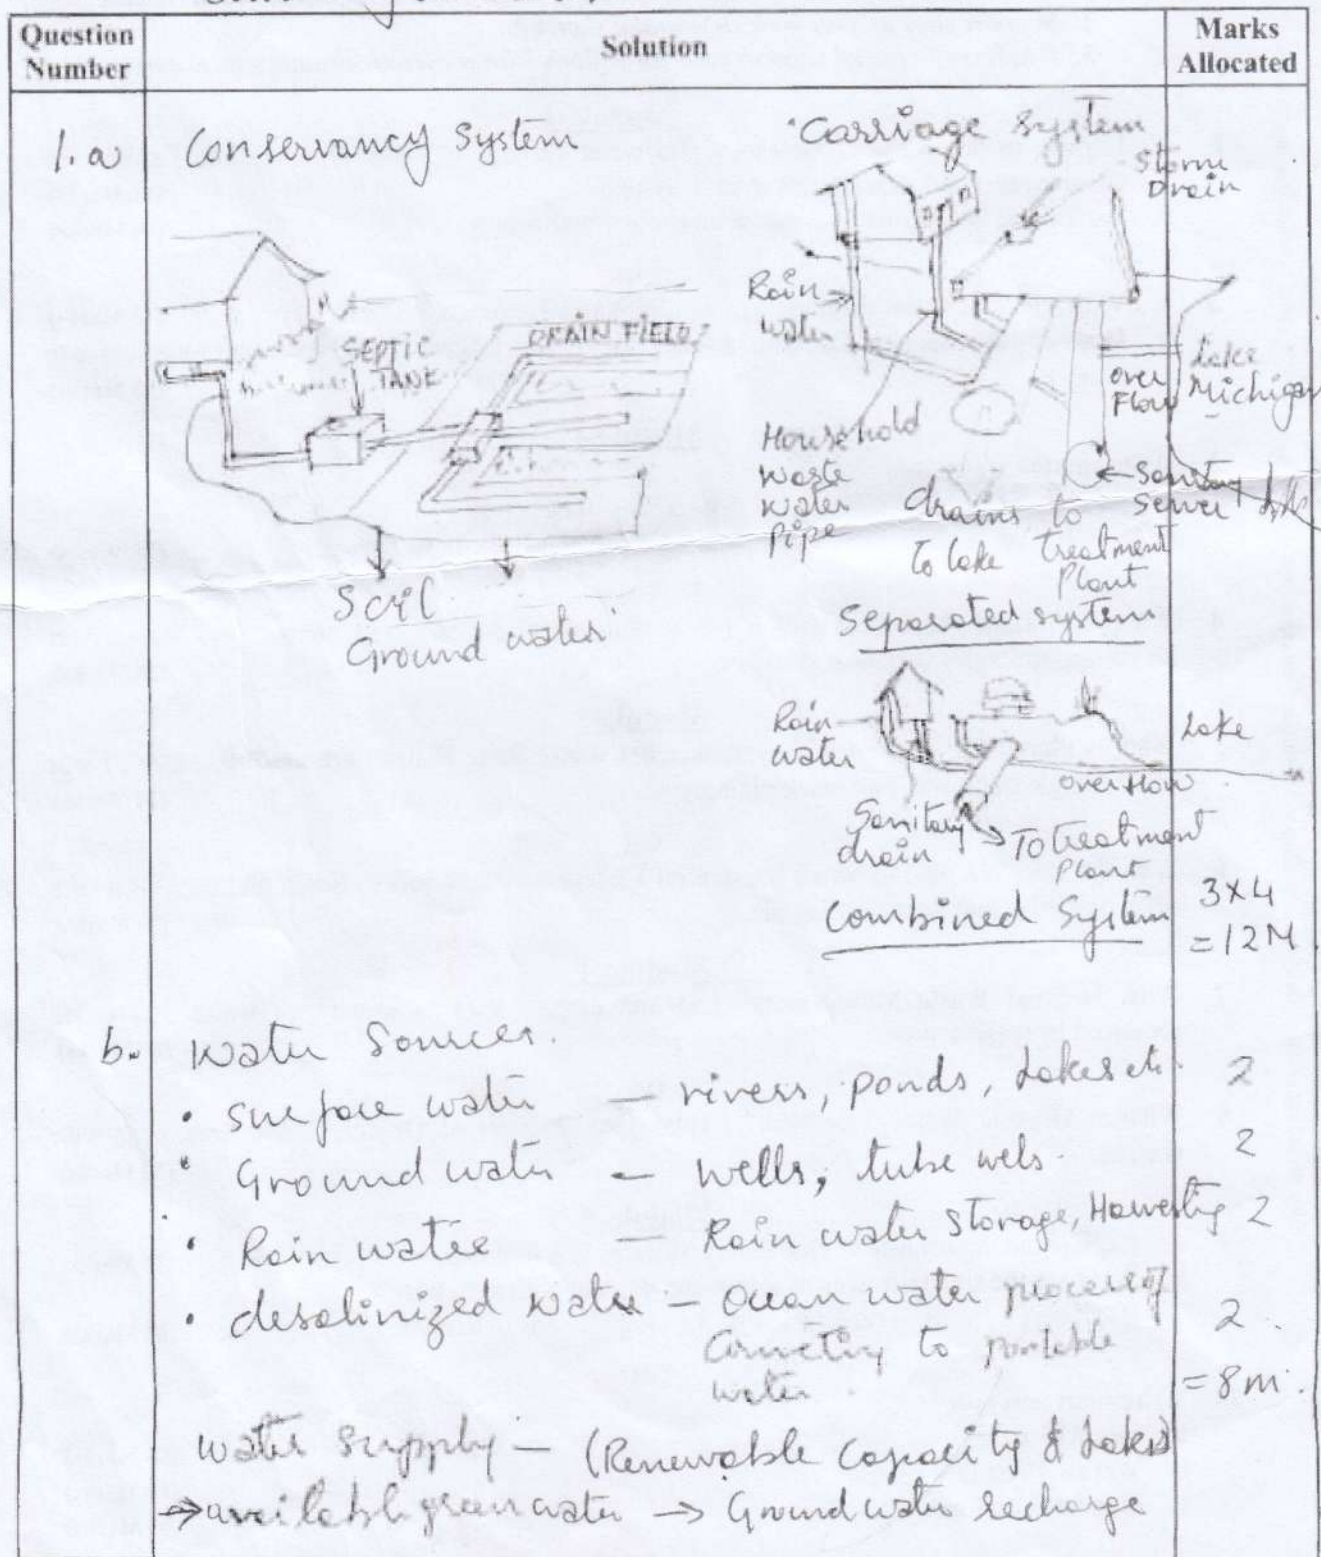 Question Number
Solution
Marks Allocated
1. a Conservancy System
SEPTIC TANK
DRAIN FIELD
Soil
Ground water
Carriage System
Storm Drain
Rain water
over Flow
Lake Michigan
Household waste water pipe
drains to lake
Sanitary sewer
To treatment Plant
Separated system
Rain water
Lake
overflow
Sanitary drain
To treatment Plant
Combined System
3x4
=12M
b. Water Sources.
• Surface water — rivers, ponds, Lakes etc. 2
• Ground water — wells, tube wels. 2
• Rain water — Rain water storage, Harvesting 2
• desalinized water — Ocean water processing 2
to
water.
= 8m.
water supply — (Renewable Capacity & Lakes)
→ available green water → Ground water recharge